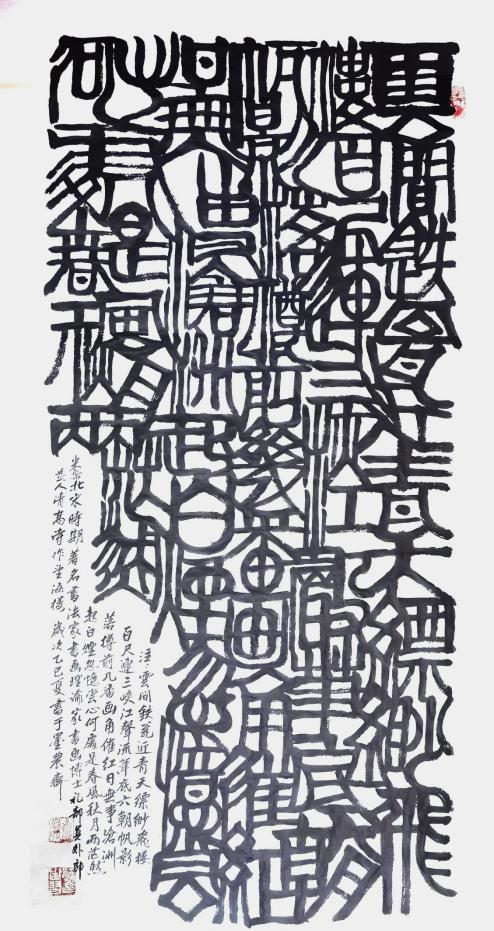 雲間鉄瓮近青天縹緲飛
樓百尺連三峡江聲流筆底六朝
帆影落樽前幾番畫角催紅
日無事滄洲起白煙忽憶賞
心何處是春風秋月兩茫然
注：雲间鉄瓮近青天缥缈飛楼
百尺連三峡江聲流筆底六朝帆影
落樽前几番画角催红日無事滄洲
起白煙忽憶赏心何處是春風秋月两茫然
米芾北宋時期著名書法家書画理論家書画博士礼部員外郎
芾人清高詩作望海楼 歲次乙巳夏書于墨農齋